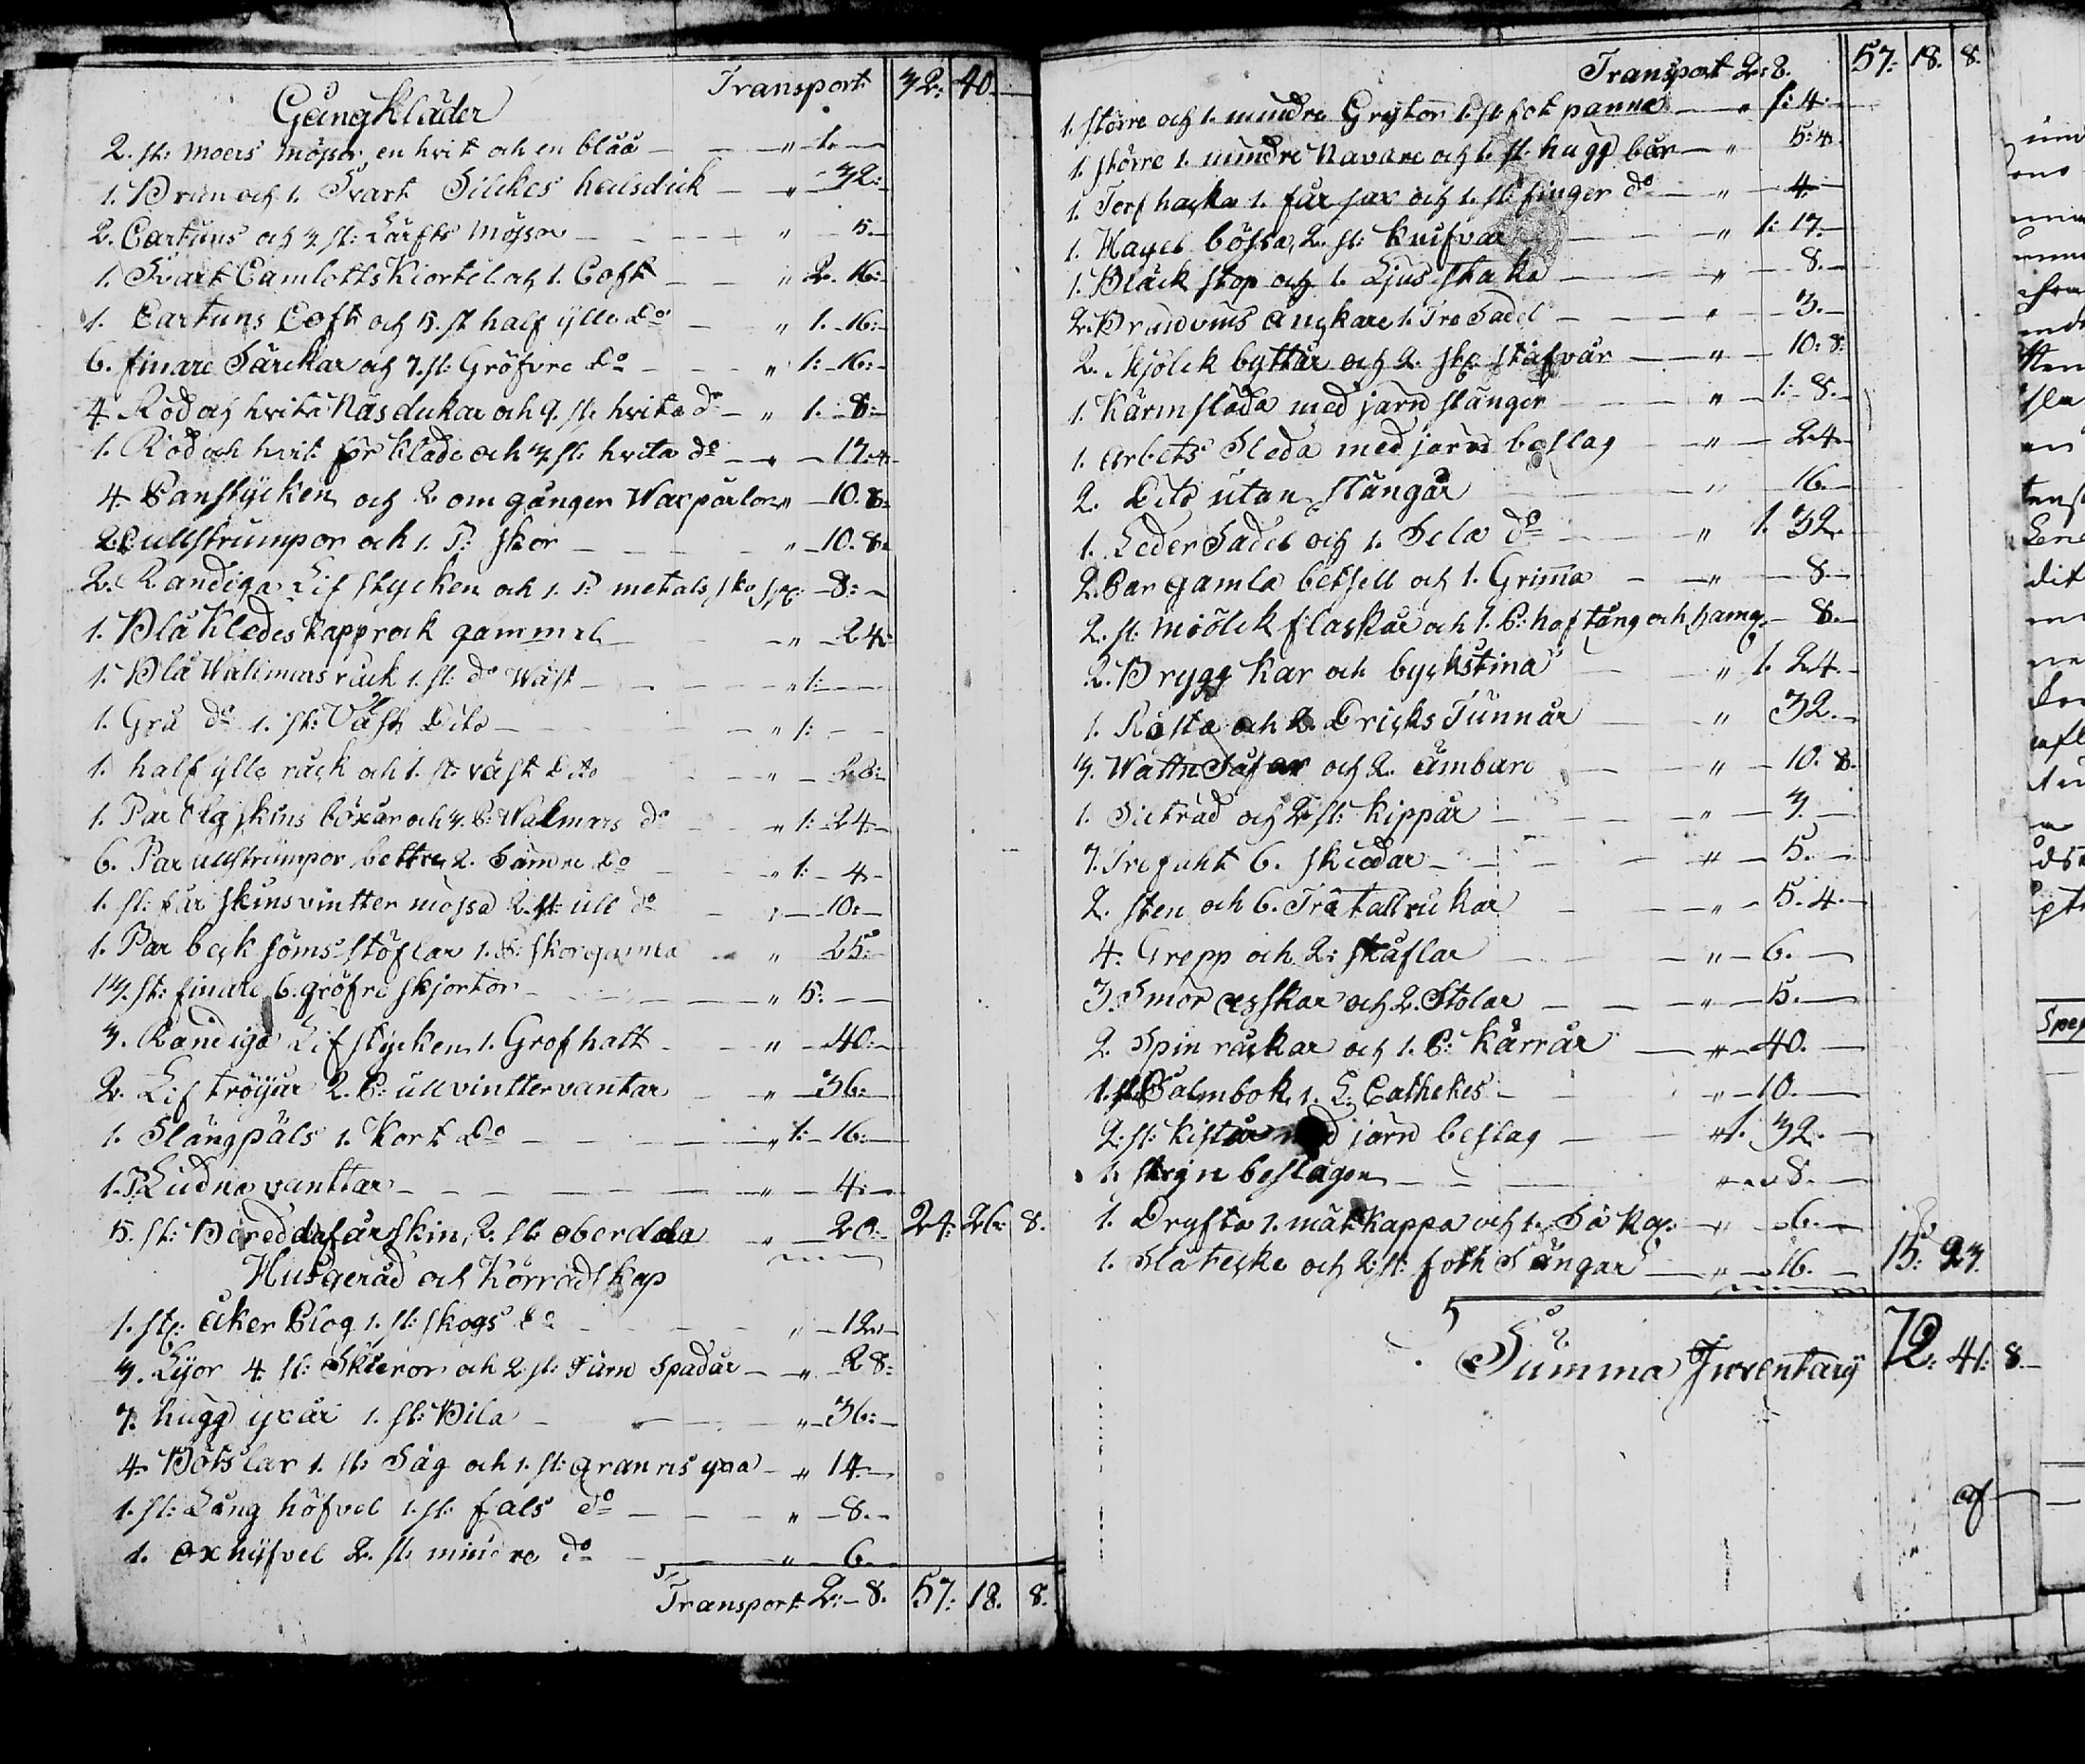 Transport 32: 40.
Gångkläder
2. st: moers mössor, en hvit och en blåå — " 1. —
1. Brun och 1. Svart Silckes halsduk — " 32:
2. Cartuns och 3 st: Lärfts mössor — " 5.
1. Svart Camlotts Kiortel och 1. Coft — " 2. 16:
1. Cartuns Coft och 5. st half ylle Do — " 1. 16:
6. finare Särckar och 7. st: Gröfvre Do — " 1: 16:
4. Röd och hvita Näsdukar och 9. st: hvita do — " 1. 8:
1. Röd och hvit för kläde och 3 st. hvita do — " 17.4
4. Panstycken och 2 om gånger Waxpärlor " 10. 8.
2 P ullstrumpor och 1. P: skor — " 10. 8.
2. Randiga Lifstycken och 1. P: metals sko sp: 8:
1. Blå Kledes Kapprock gammal — " 24:
1. Blå Wallmars råck 1. st: do Wäst — " 1: —
1. Grå do 1. st: Väst Dito — " 1: —
1. half ylle råck och 1. st: väst Dito — " 28:
1. Par Elg skins böxår och 3. P: Walmars do — " 1: 24
6. Par ullstrumpor bettre, 2. Sämre Do — " 1: 4
1. st: får skins vintter mössa 2. st: ull do — " 10:
1. Par beck söms stöflar 1. P: skor gamla — " 25:
13. st: finare, 6. gröfre skjortor — " 5. —
3. Randiga Lifstycken, 1. Grof hatt — " 40:
2. Lif tröyar 2. P: ull vinttervantar — " 36:
1. Slängpäls 1. Kort Do — " 1: 16:
1. P Ludna vanttar — " 4:
5. st: Beredda fårskin, 2. st: oberdda — " 20. 24: 26: 8.
Husgeråd och Körrådskap
1. st: åker Plog 1. st: skogs Do — " 12.
3. Lyor 4. st: Skieror och 2 st: Järn Spadar — " 28:
7. hugg yxår 1. st: Bila — " 36:
4. Bötslar 1. st: Såg och 1. st: granris yxa — " 14.
1. st: Lång höfvel 1. st: fals do — " 8.
1. ox hyfvel 2. st. mindre do — " 6.
Transport 2: 8. 57: 18. 8.
Transport 2: 8. 57: 18. 8.
1. större och 1. mindre Grytor 1. st: fot panna — " 1: 4.
1. större 1. mindre Navare och 1. st. hugg bår — " 5: 4.
1. Torf hacka 1. får sax och 1. st: finger do — " 4
1. Hagel bössa, 2. st: Knifvar — " 1: 17.
1. Bläck stop och 1. Ljus staka — " 8.
2. Brudvins Anckare 1. Tre Sadel — " 3.
2. Mjölck byttår och 2. st: stäfvår — " 10: 8:
1. Kärmsläda med jarn stänger — " 1: 8.
1. Arbets Sleda med jarn beslag — " 24.
2. Dito utan Stängår — " 16.
1. Leder Sadel och 1. Sela do — " 1. 32.
2. Par gamla betsell och 1. Grimma — " 8.
2. st. miölck flaskår och 1. P: hof tång och ham: 8.
2. Brygg Kar och byckstina — " 1. 24.
1. Råsta och 2. Dricks Tunnår — " 32.
3. Wattn Såar och 2. ämbare — " 10. 8.
1. Siltråd och 2 st: kippår — " 3.
7. Trefuht 6. skiedar — " 5.
2. sten och 6. Trä tallrickar — " 5. 4.
4. Grepp och 2: skåflar — " 6.
3. Smör asskar och 2. Stolar — " 5.
2. Spin råckar och 1. P: Kårrår — " 40.
1. st Psalmbok, 1. L: Cathekes — " 10.
2. st: kistår med järn beslag — " 1. 32.
1. skrin beslagen — " 8.
1. Drysta 1. mat kappa och 1. — " 6.
1. Slåtecke och 2: st: foth Sängar — " 16. 15: 23.
Summa Inventarij 72: 41: 8.
af